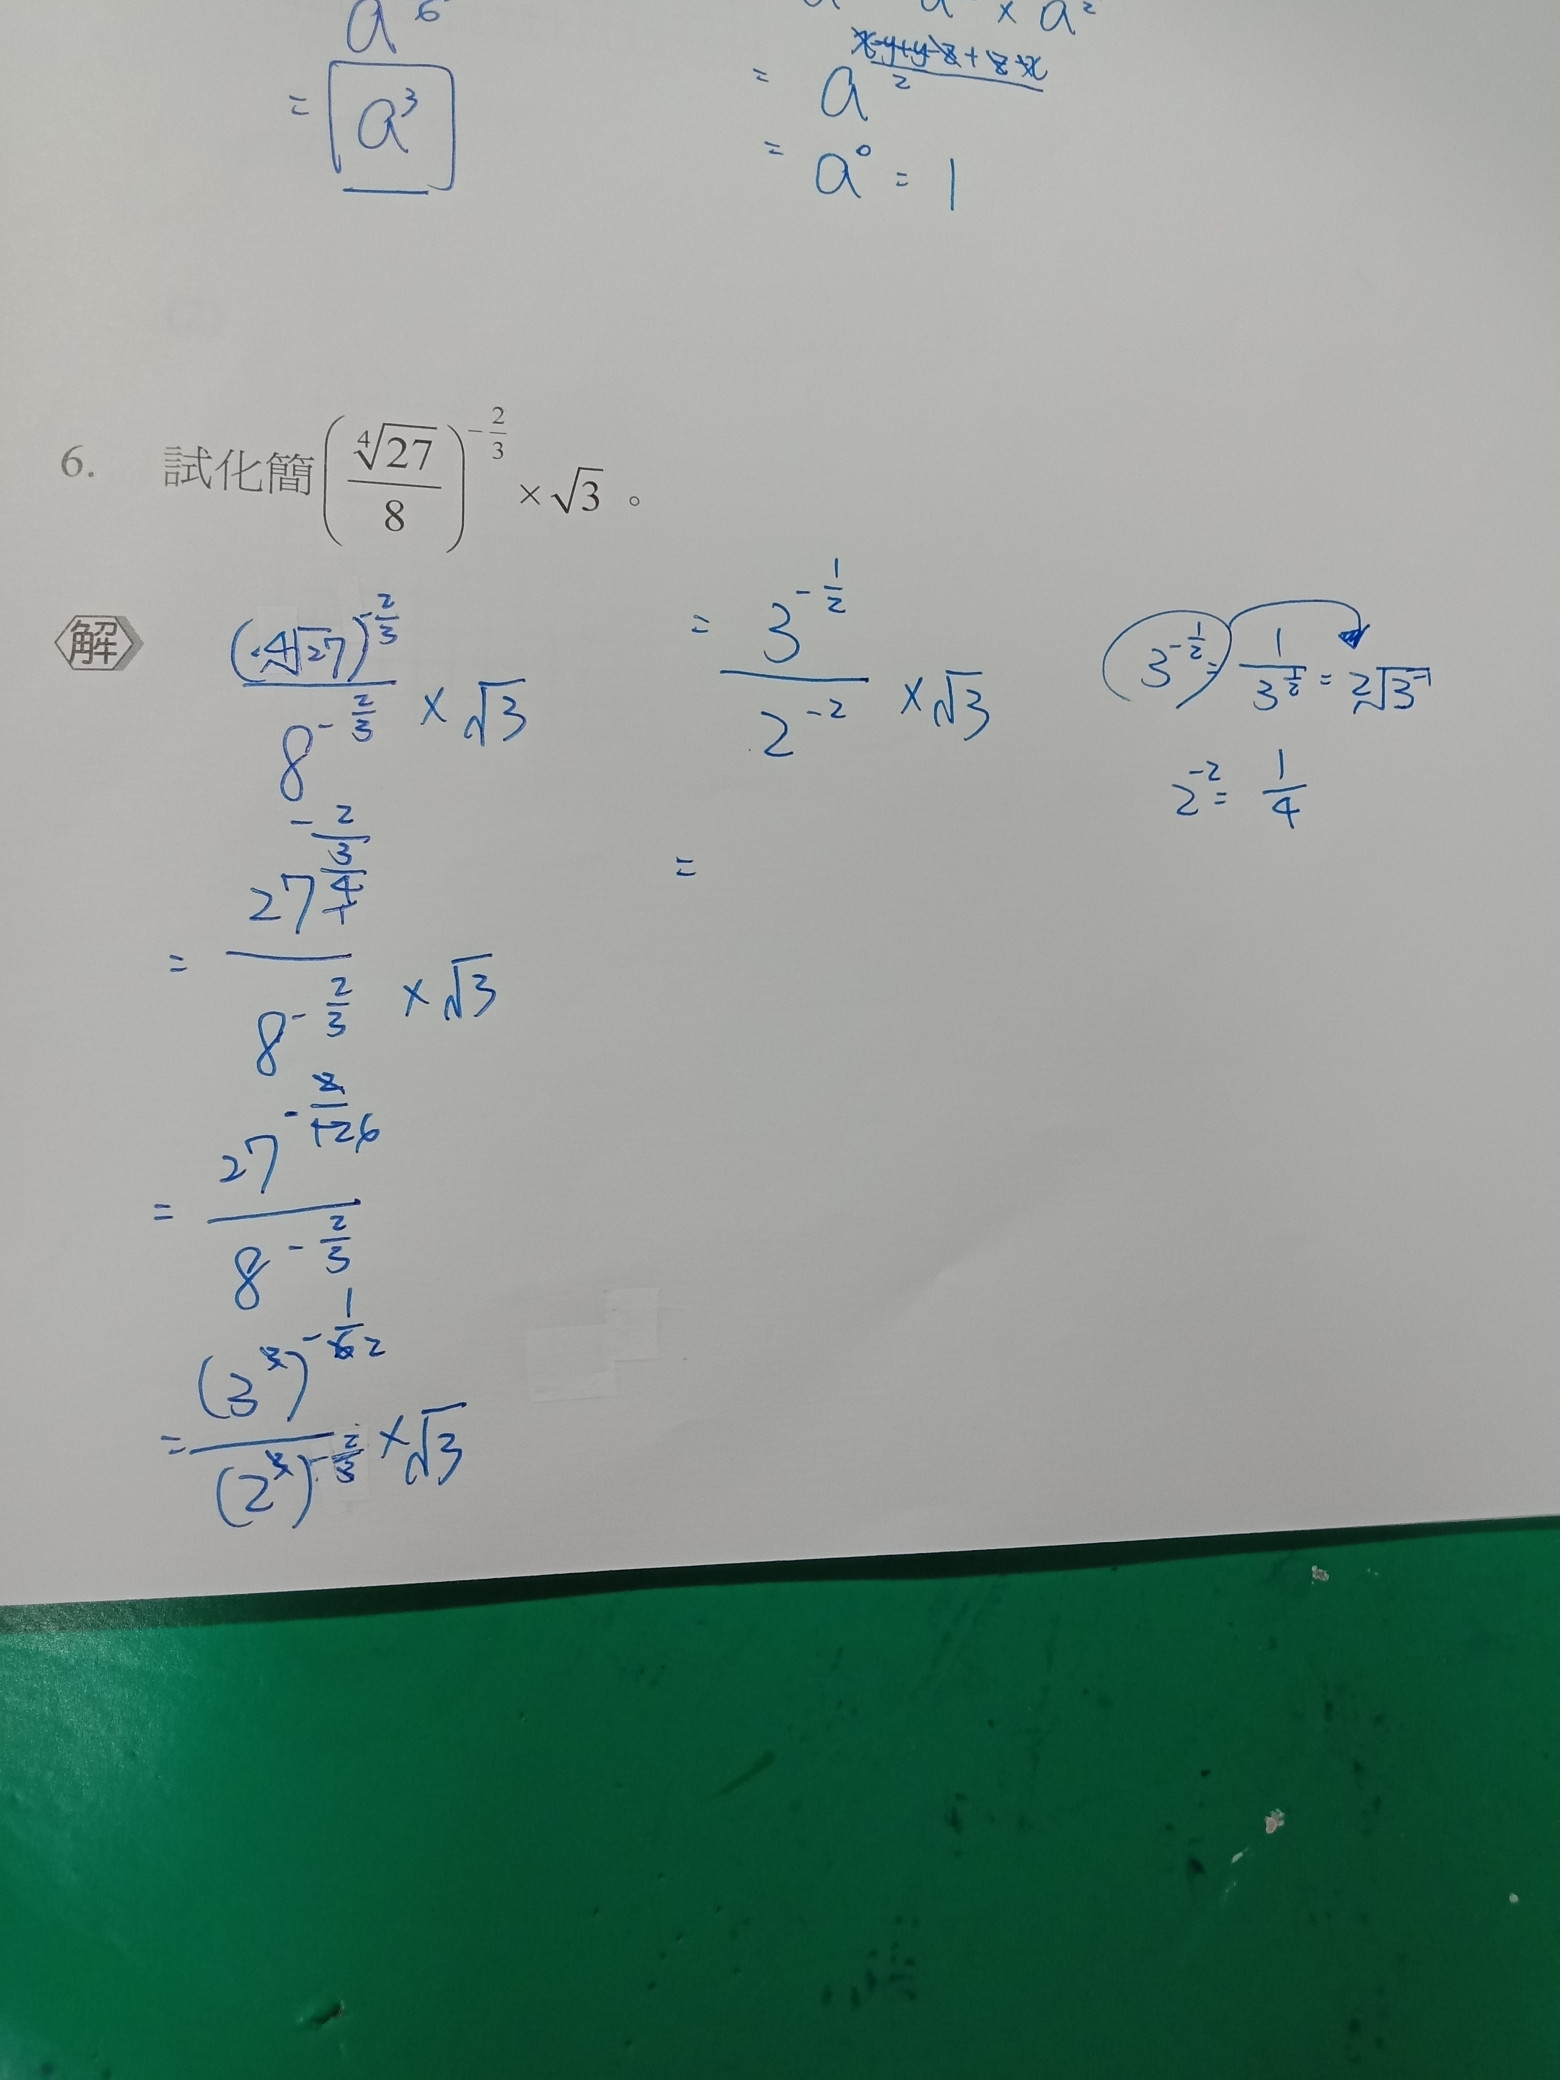 a⁶
= a³
× a²
= a^((x-y+y-z+z-x)/2)
= a⁰ = 1
6. 試化簡(∜27/8)^(-2/3) × √3 。
解
(∜27)^(-2/3) / 8^(-2/3) × √3
= 27^(-2/3/4/1) / 8^(-2/3) × √3
= 27^(-2/12 6) / 8^(-2/3)
= (3³)^(-1/6 2) / (2³)^(-2/3) × √3
= 3^(-1/2) / 2^(-2) × √3
=
3^(-1/2) = 1/3^(1/2) = ²√3⁻¹
2⁻² = 1/4